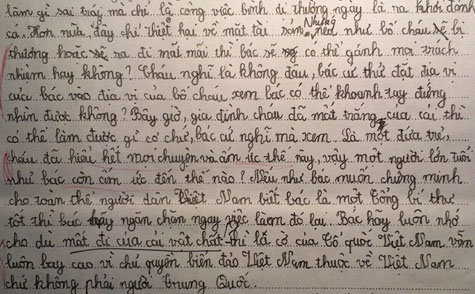 làm gì sai trái mà chỉ là công việc bình di thường ngày là ra khơi đánh
cá. Hơn nữa, đây chỉ thiệt hại về mặt tài sản, Nhưng nếu như bố cháu bị
thương hoặc ra đi mất mãi thì bác sẽ có thể gánh mọi trách
nhiệm hay không? Cháu nghĩ là không đâu, bác cứ thử đặt địa vị
của bác vào địa vị của bố cháu xem bác có thể khoanh tay đứng
nhìn được không? Bây giờ, gia đình cháu đã mất trắng của cải thì
có thể làm được gì cơ chứ, bác cứ nghĩ mà xem. Là một đứa trẻ,
cháu đã hiểu hết mọi chuyện và ấm ức thế này, vậy một người lớn tuổi
như bác còn ấm ức đến thế nào? Nếu như bác muốn chứng minh
cho toàn thể người dân Việt Nam biết bác là một Tổng bí thư
tốt thì bác hãy ngăn chặn ngay việc làm đó lại. Bác hãy luôn nhớ
cho dù mất đi của cải vật chất thì lá cờ của Tổ quốc Việt Nam vẫn
luôn bay cao vì chủ quyền biển đảo Việt Nam thuộc về Việt Nam
chứ không phải người Trung Quốc.